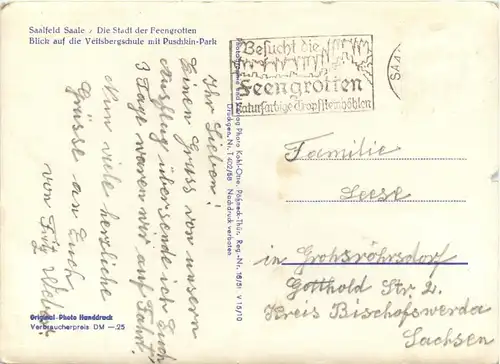 Saalfeld Saale / Die Stadt der Feengrotten
Blick auf die Veitsbergschule mit Puschkin-Park
Besucht die
Feengrotten
Farbige Tropfsteinhöhlen
SAA
Ihr Lieben!
Einen Gruss von unsern
Ausflug übersende ich Euch
3 Tage waren wir auf Fahrt.
Nun viele herzliche
Grüsse an Euch
von Fritz
Photographie und Verlag Photo Kohl-Otte, Pößneck-Thür. Reg.-Nr. 16/51 V 15/10
Druckgen. Nr. T 402/58 Nachdruck verboten
Familie
Leese
in Grohsröhrsdorf
Gotthold Str 2.
Kreis Bischofswerda
Sachsen
Original-Photo Handdruck
Verbraucherpreis DM —.25